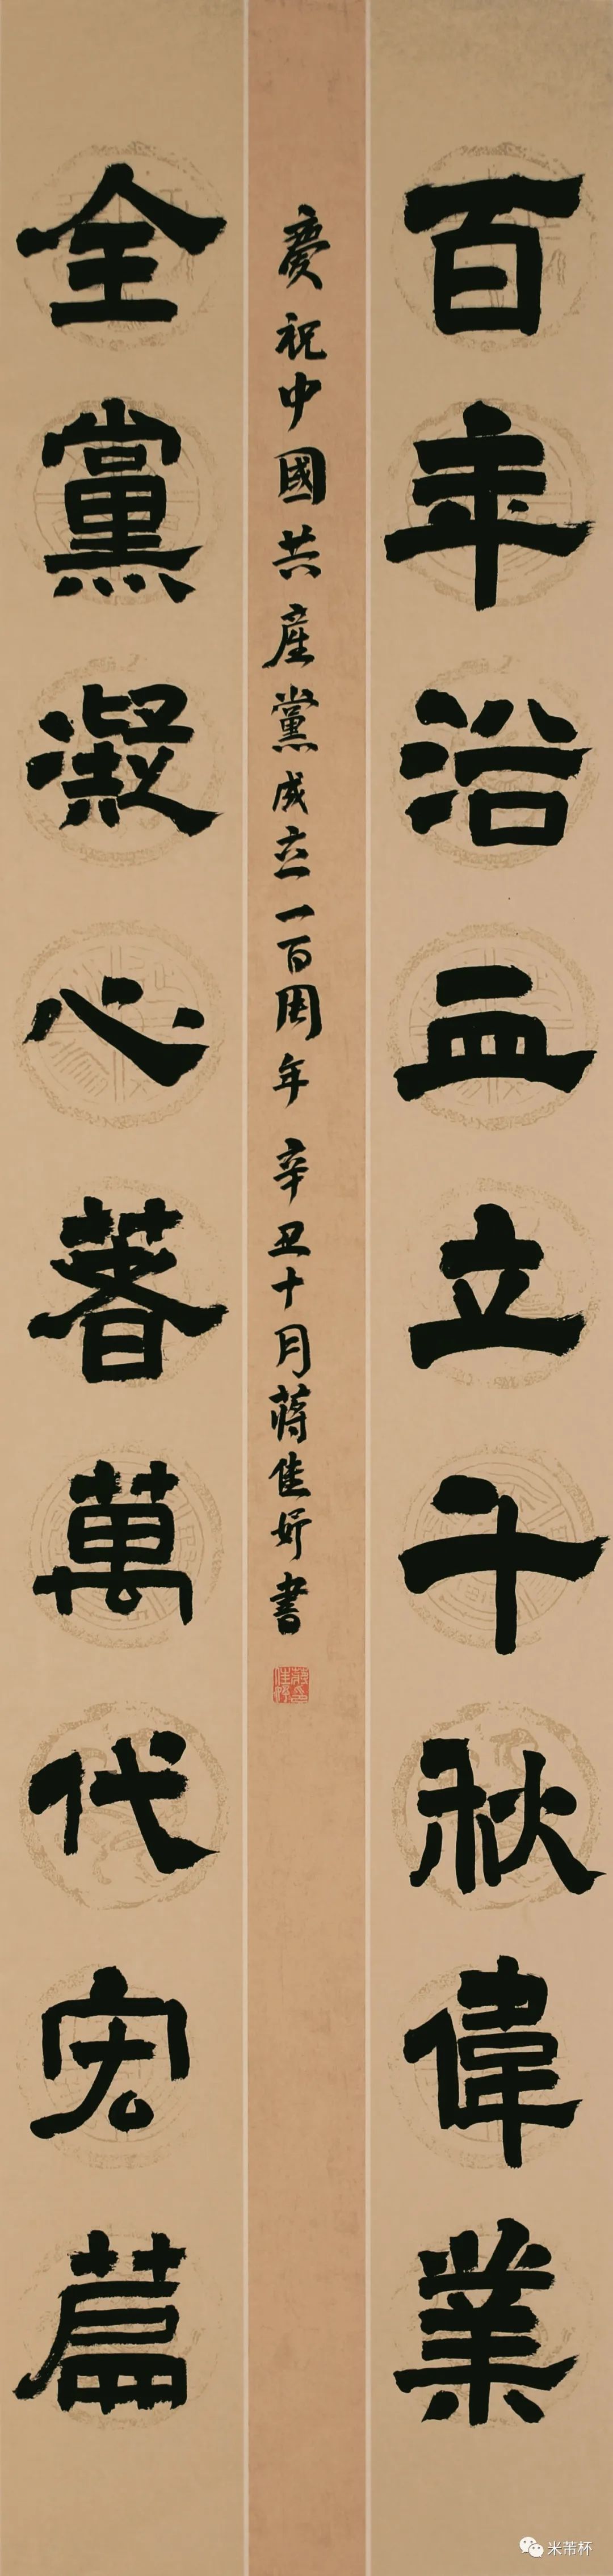 百年浴血立千秋偉業
慶祝中國共產黨成立一百周年 辛丑十月蔣佳妤書
全黨凝心著萬代宏篇
米芾杯